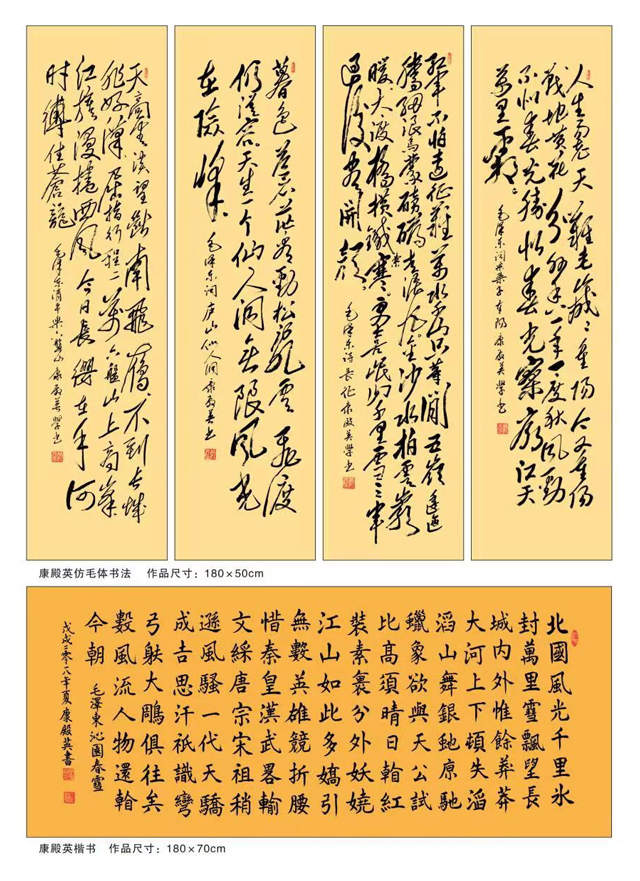 人生易老天难老岁岁重阳今又重阳
战地黄花分外香一年一度秋风劲
不似春光胜似春光寥廓江天
万里霜
毛泽东词采桑子重阳 康殿英学书
红军不怕远征难万水千山只等闲五岭逶迤
腾细浪乌蒙磅礴走泥丸金沙水拍云崖
暖大渡桥横铁索寒更喜岷山千里雪三军
过后尽开颜
毛泽东诗长征康殿英学书
暮色苍茫看劲松乱云飞渡
仍从容天生一个仙人洞无限风光
在险峰
毛泽东词庐山仙人洞康殿英书
天高云淡望断南飞雁不到长城
非好汉屈指行程二万六盘山上高峰
红旗漫卷西风今日长缨在手何
时缚住苍龙
毛泽东清平乐六盘山康殿英学书
康殿英仿毛体书法 作品尺寸：180×50cm
北國風光千里氷
封萬里雪飄望長
城内外惟餘莽莽
大河上下頓失滔
滔山舞銀虵原馳
蠟象欲與天公試
比高須晴日看紅
裝素裹分外妖嬈
江山如此多嬌引
無數英雄競折腰
惜秦皇漢武畧輸
文綵唐宗宋祖稍
遜風騷一代天驕
成吉思汗祇識彎
弓射大雕俱往矣
數風流人物還看
今朝 毛澤東沁園春雪
戊戌二零一八年夏康殿英書
康殿英楷书 作品尺寸：180×70cm